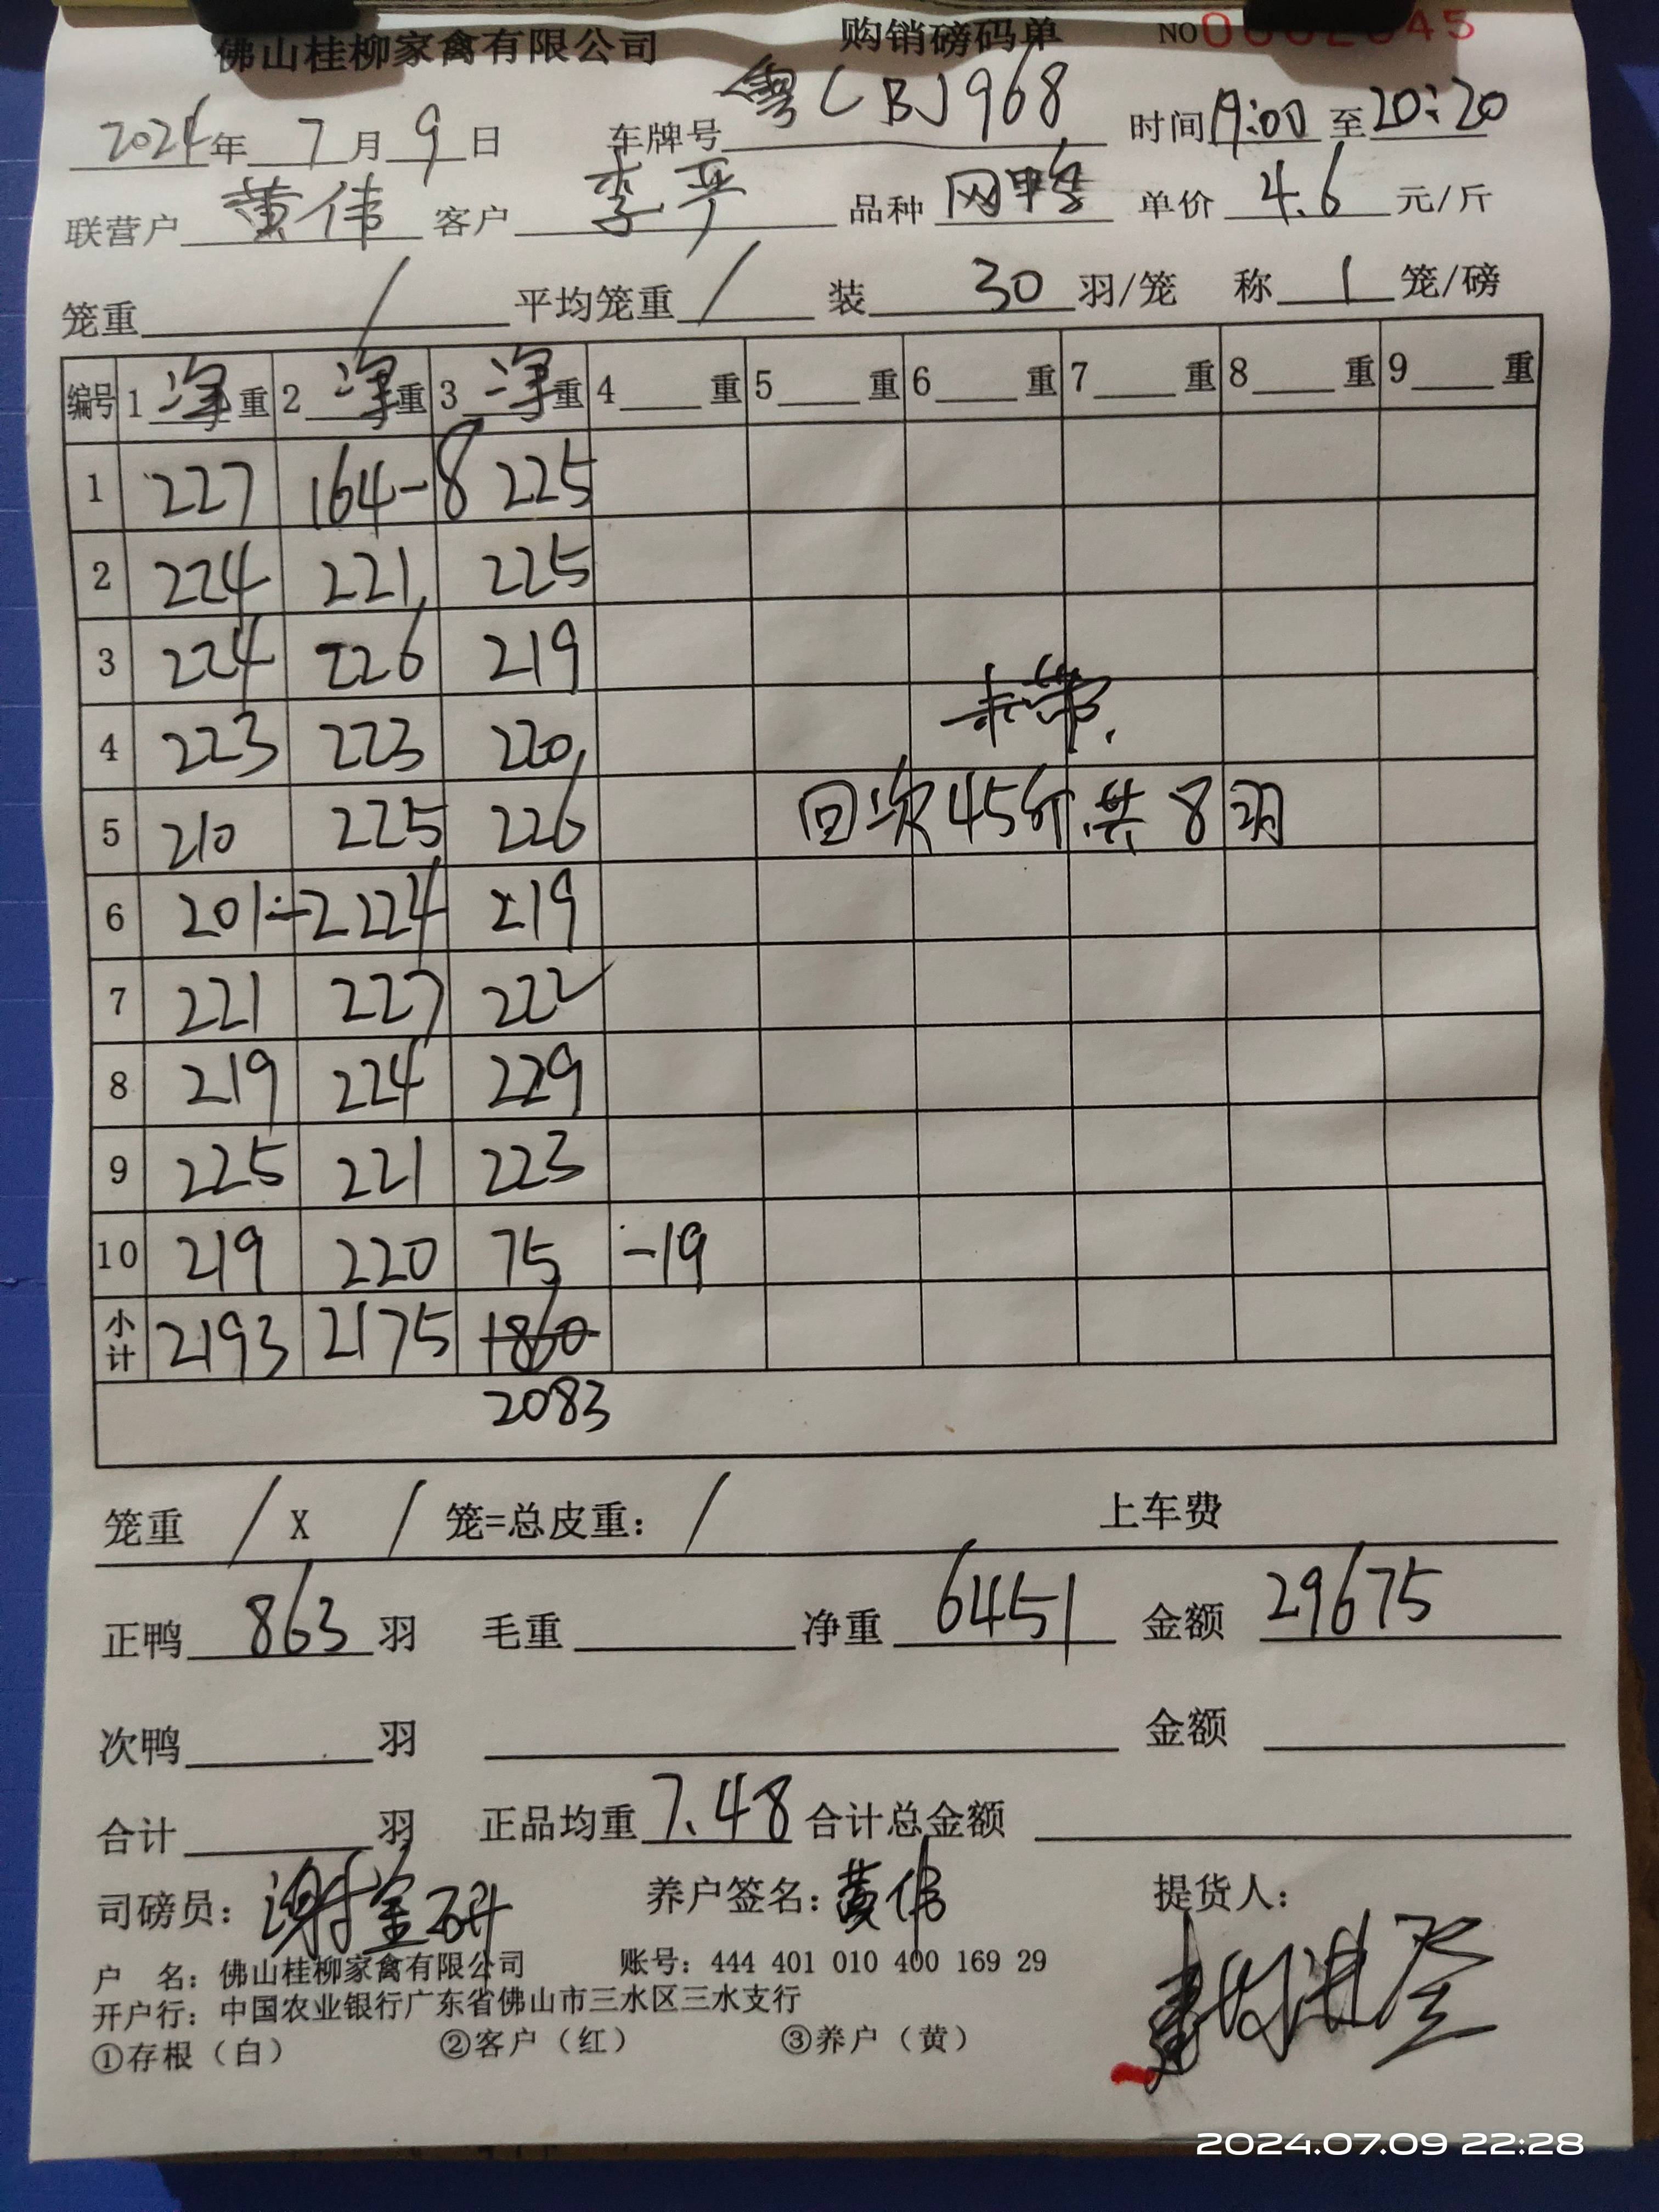 佛山桂柳家禽有限公司 购销磅码单 NO
2024年 7月 9日 车牌号 粤CBJ968 时间19:00至20:20
联营户 黄伟 客户 李严 品种 网鸭 单价 4.6 元/斤
笼重 / 平均笼重 / 装 30 羽/笼 称 1 笼/磅
编号 1 净 重 2 净 重 3 净 重 4 重 5 重 6 重 7 重 8 重 9 重
1 227 164-8 225
2 224 221 225
3 224 226 219
4 223 223 220
未带.
5 210 225 226 回次45斤共8羽
6 201-2 224 219
7 221 227 222
8 219 224 229
9 225 221 223
10 219 220 75 -19
小计 2193 2175 1860
2083
笼重 / X / 笼=总皮重: / 上车费
正鸭 863 羽 毛重 净重 6451 金额 29675
次鸭 羽 金额
合计 羽 正品均重 7.48 合计总金额
司磅员: 谢金研 养户签名: 黄伟 提货人:
户 名: 佛山桂柳家禽有限公司 账号: 444 401 010 400 169 29
开户行: 中国农业银行广东省佛山市三水区三水支行
①存根（白） ②客户（红） ③养户（黄）
2024.07.09 22:28